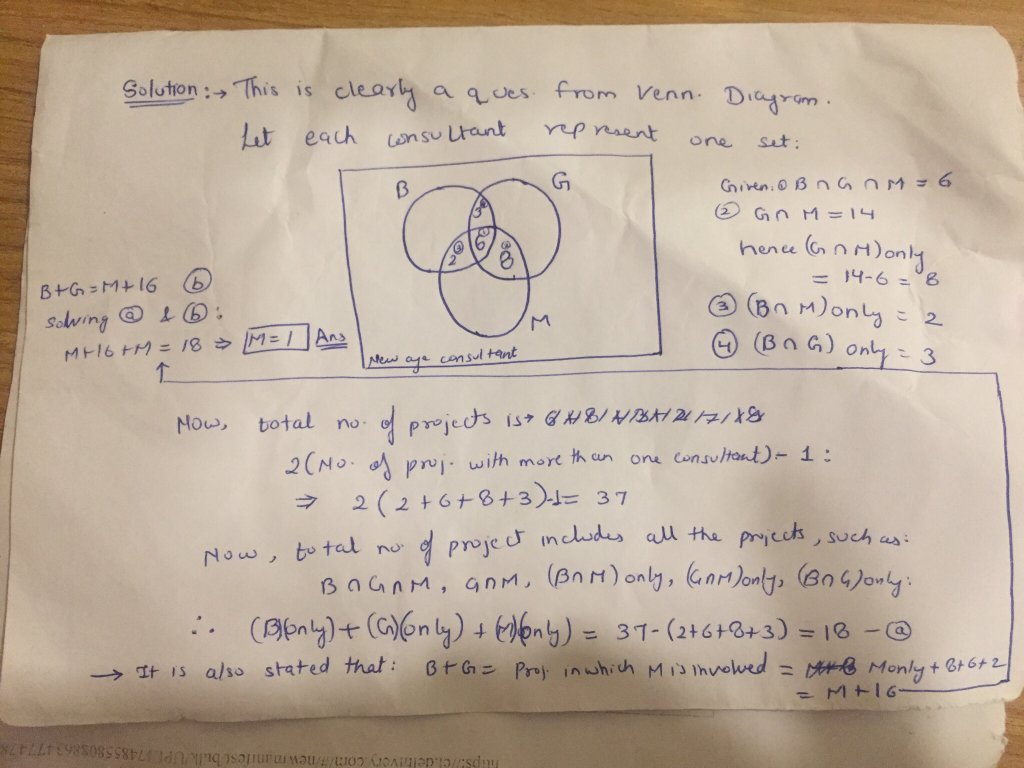 Solution :→ This is clearly a ques. from Venn. Diagram.
Let each consultant represent one set :
B
G
3
6
2
8
M
New age consultant
Given. ① B ∩ G ∩ M = 6
② G ∩ M = 14
hence (G ∩ M) only
= 14-6 = 8
③ (B ∩ M) only = 2
④ (B ∩ G) only = 3
B+G = M+16 ⓑ
solving ⓐ & ⓑ :
M+16+M = 18 ⇒ M = 1 Ans
Now, total no. of projects is →
2(No. of proj. with more than one consultant) - 1 :
⇒ 2 (2+6+8+3)-1 = 37
Now, total no. of project includes all the projects, such as:
B ∩ G ∩ M, G ∩ M, (B ∩ M) only, (G ∩ M) only, (B ∩ G) only:
∴ (B)(only) + (G)(only) + (M)(only) = 37-(2+6+8+3) = 18 - ⓐ
→ It is also stated that : B+G = Proj. in which M is involved = M only + 8+6+2
= M+16